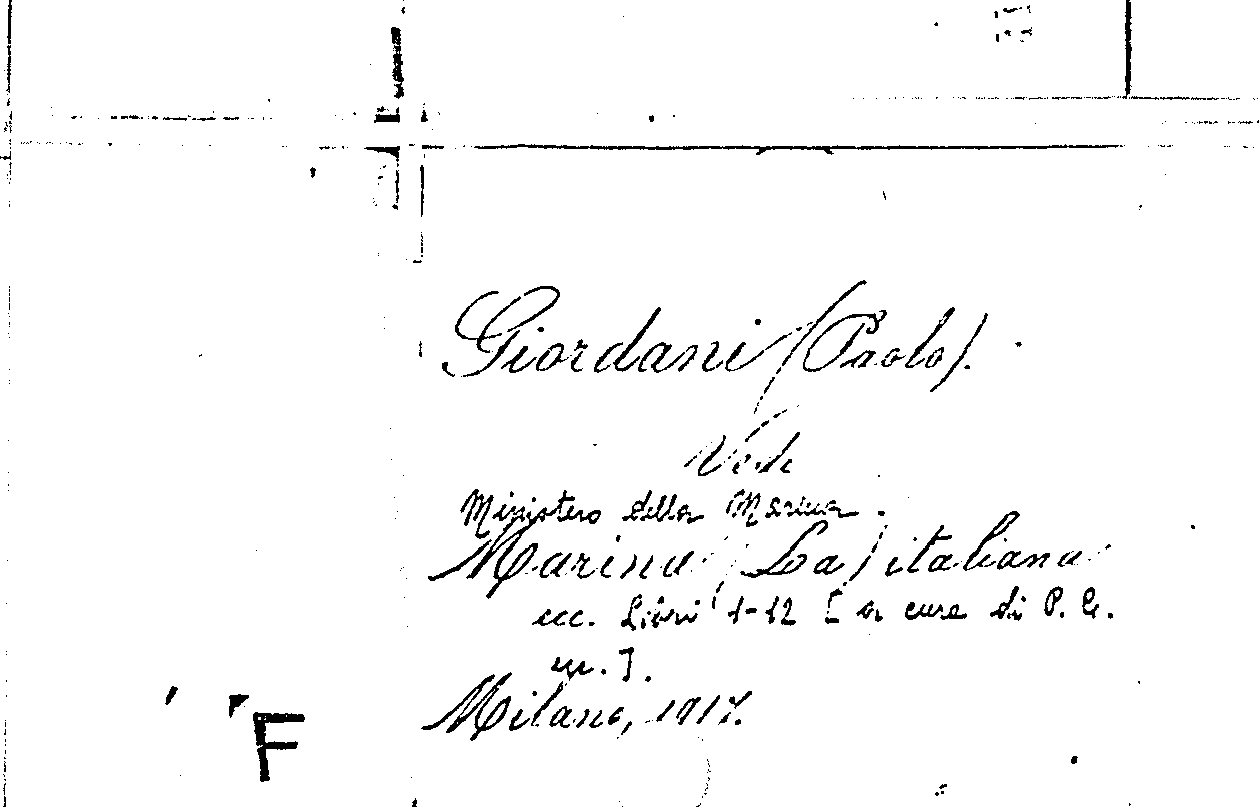 Giordani (Paolo).
Vedi
Ministero della Marina.
Marina (La) italiana
ecc. Libri 1-12 [a cura di P. G.
F
Milano, 1917.